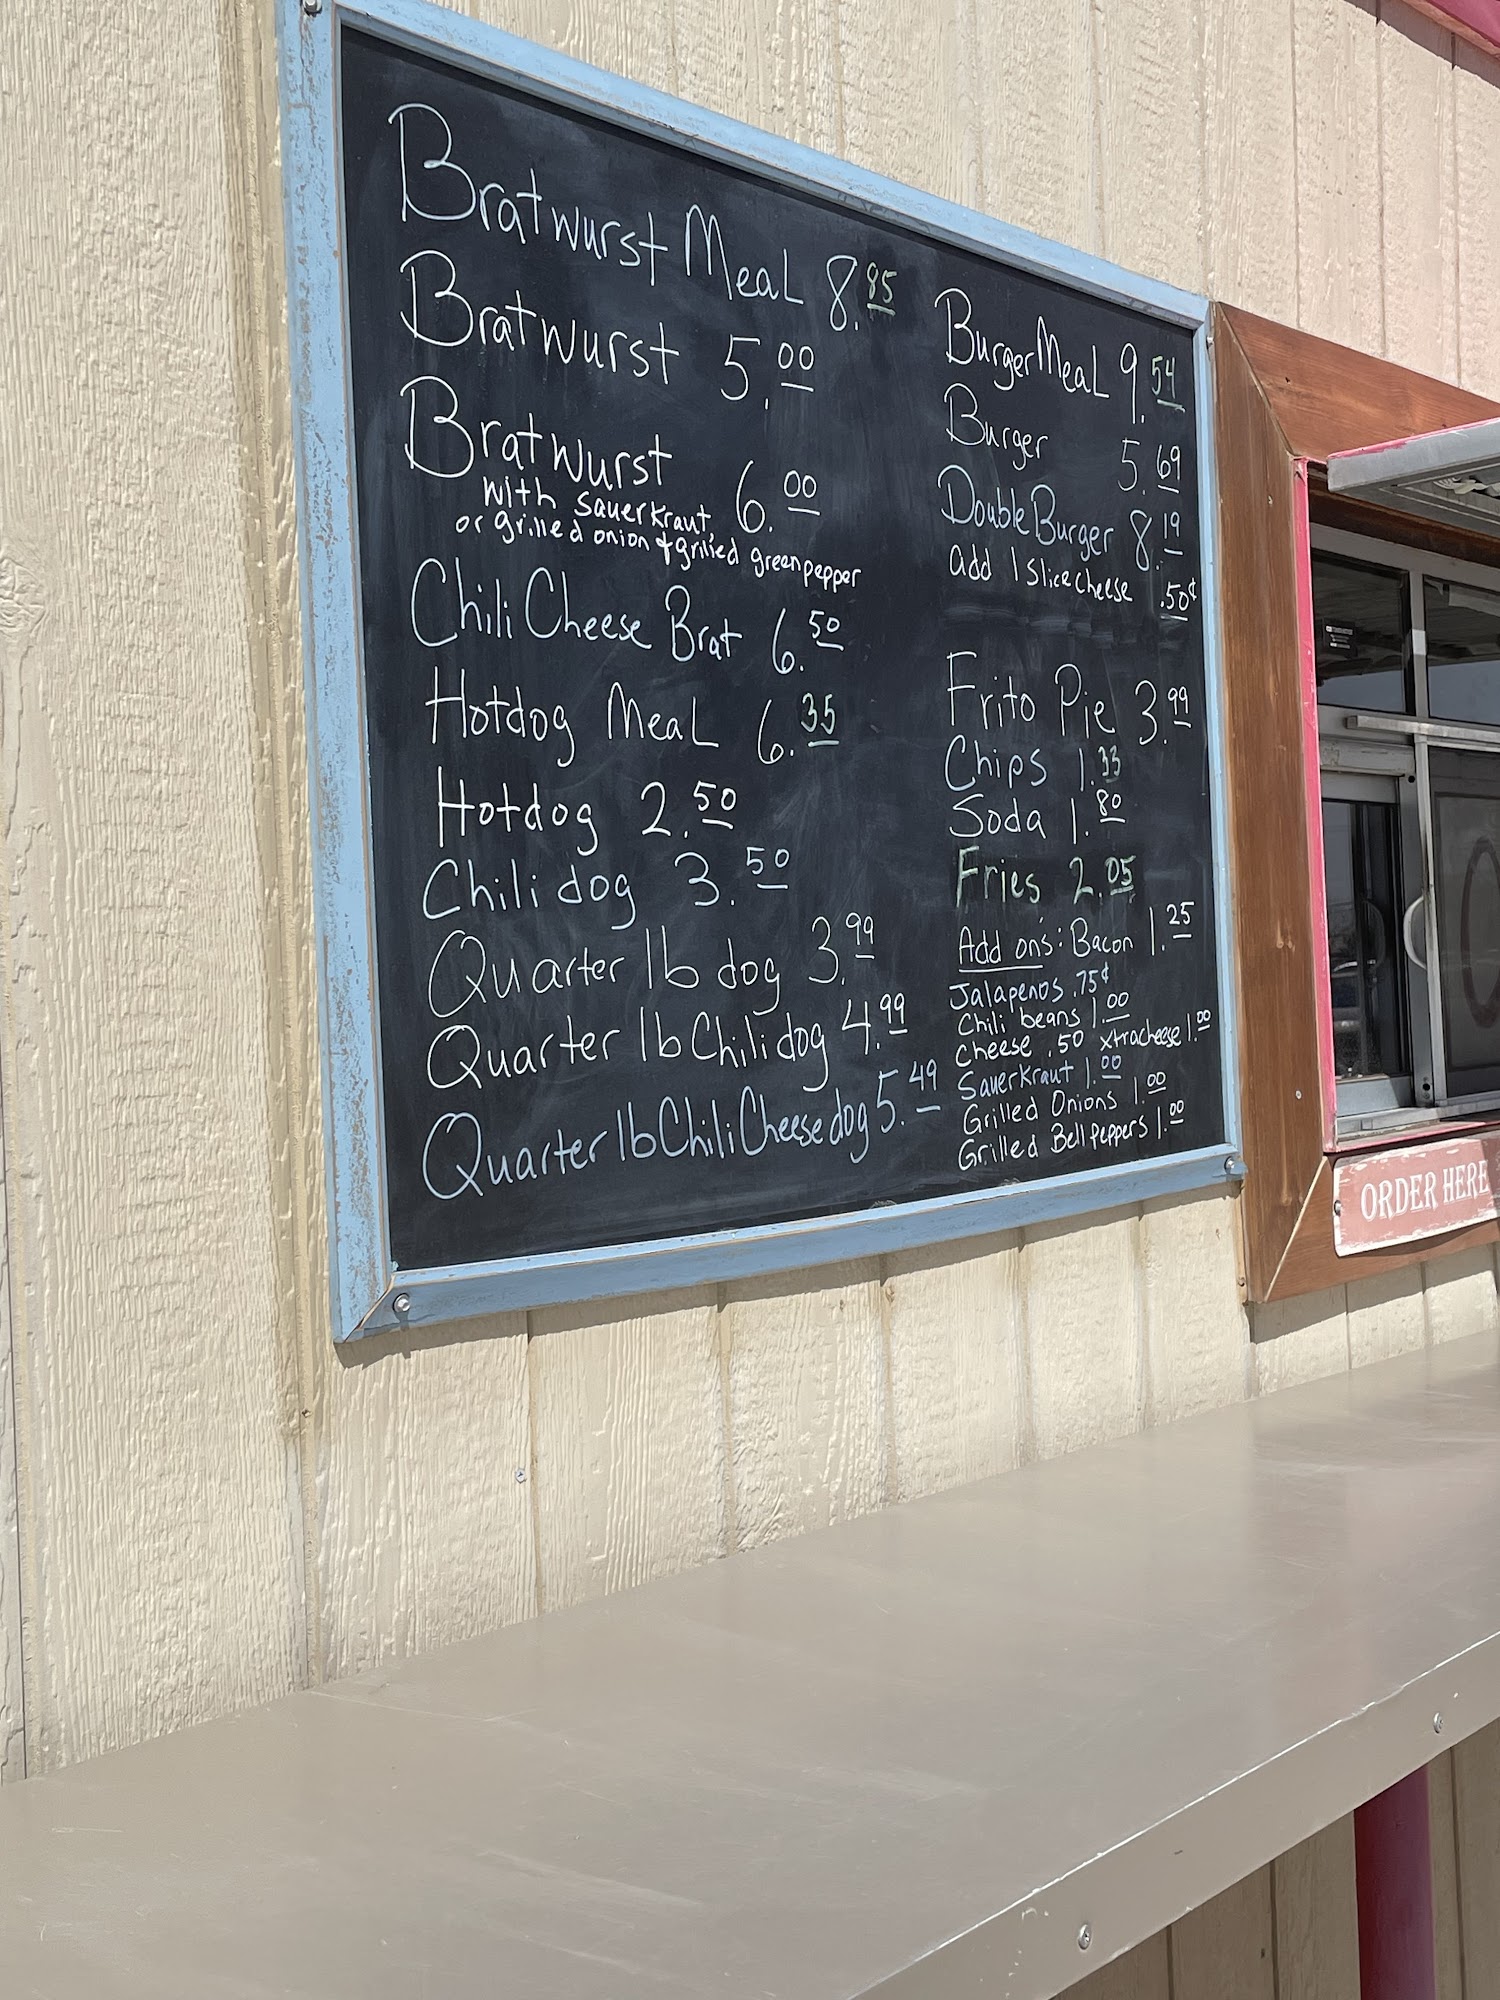 Bratwurst Meal 8.85
Bratwurst 5.00
Bratwurst 6.00
with sauerkraut
or grilled onion & grilled green pepper
Chili Cheese Brat 6.50
Hotdog Meal 6.35
Hotdog 2.50
Chili dog 3.50
Quarter lb dog 3.99
Quarter lb Chili dog 4.99
Quarter lb Chili Cheese dog 5.49
Burger Meal 9.54
Burger 5.69
Double Burger 8.19
add 1 slice cheese .50¢
Frito Pie 3.99
Chips 1.33
Soda 1.80
Fries 2.05
Add on's: Bacon 1.25
Jalapenos .75¢
Chili beans 1.00
Cheese .50 xtra cheese 1.00
Sauerkraut 1.00
Grilled Onions 1.00
Grilled Bell peppers 1.00
ORDER HERE